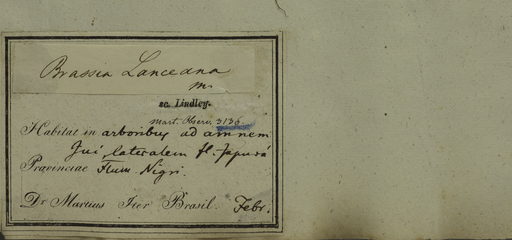 Brassia Lanceana
m.
sc. Lindley.
Mart. Observ. 3136
Habitat in arboribus ad amnem
Jui, lateralem fl. Japurá
Provinciae Flum. Nigri.
Dr. Martius Iter Brasil. Febr.